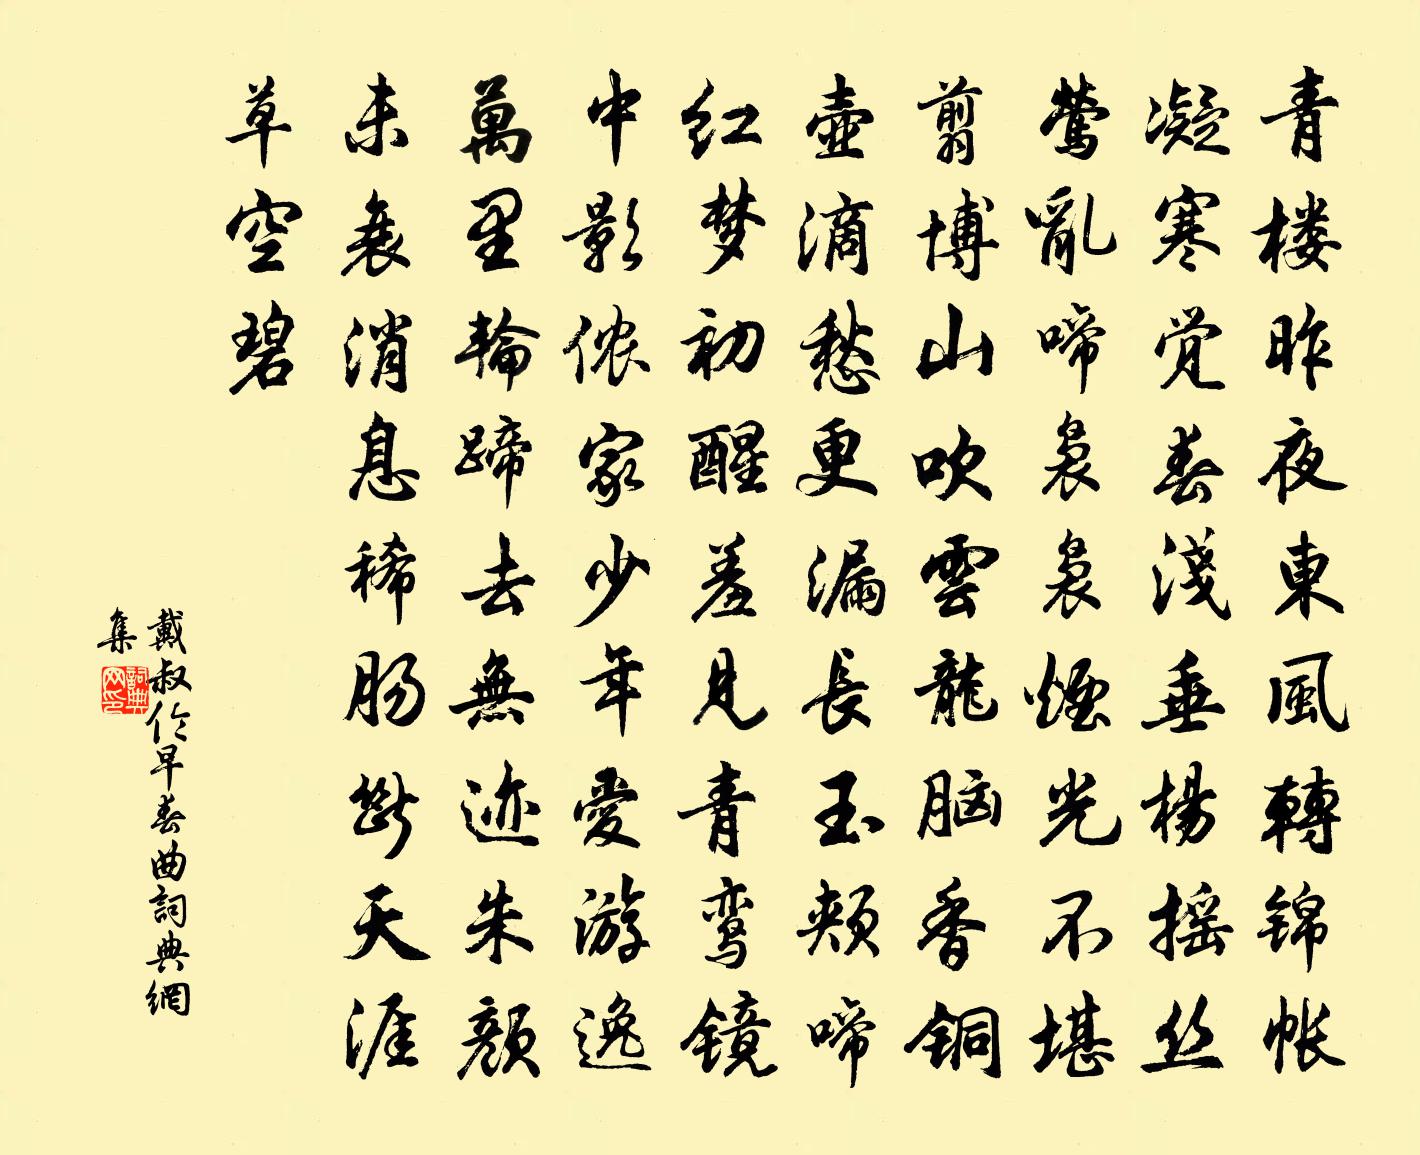 青楼昨夜東風轉錦帐
凝寒觉春淺垂楊摇丝
莺亂啼袅袅煙光不堪
剪博山吹雲龍脑香铜
壶滴愁更漏長玉颊啼
红梦初醒羞见青鸾镜
中影侬家少年愛游逸
萬里輪蹄去無迹朱颜
未衰消息稀肠断天涯
草空碧
戴叔伦早春曲詞典網
集
詞典网印